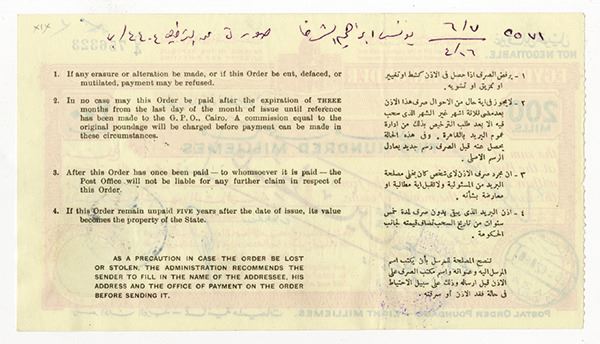 ٥٥٧١
٦/٧
٤/٢٦
يونس ابراهيم الشرفا
XIX
756323
NOT NEGOTIABLE.
1. If any erasure or alteration be made, or if this Order be cut, defaced, or
mutilated, payment may be refused.
2. In no case may this Order be paid after the expiration of THREE
months from the last day of the month of issue until reference
has been made to the G.P.O., Cairo. A commission equal to the
original poundage will be charged before payment can be made in
these circumstances.
3. After this Order has once been paid — to whomsoever it is paid — the
Post Office will not be liable for any further claim in respect of
this Order.
4. If this Order remain unpaid FIVE years after the date of issue, its value
becomes the property of the State.
AS A PRECAUTION IN CASE THE ORDER BE LOST
OR STOLEN, THE ADMINISTRATION RECOMMENDS THE
SENDER TO FILL IN THE NAME OF THE ADDRESSEE, HIS
ADDRESS AND THE OFFICE OF PAYMENT ON THE ORDER
BEFORE SENDING IT.
١ - يرفض الصرف اذا حصل فى الاذن كشط او تغيير
او تمزيق او تشويه.
٢ - لايجوز فى اية حال من الاحوال صرف هذا الاذن
بعد مضى ثلاثة اشهر غير الشهر الذى سحب
فيه الا بعد طلب الترخيص بذلك من ادارة
عموم البريد بالقاهرة. وفى هذه الحالة
يحصل عنه قبل الصرف رسم جديد يعادل
الرسم الاصلى.
٣ - ان مجرد صرف الاذن لاى شخص كان يخلى مصلحة
البريد من المسئولية ولا تقبل اية مطالبة او
معارضة بشأنه.
٤ - اذن البريد الذى يبقى بدون صرف لمدة خمس
سنوات من تاريخ السحب تضاف قيمته لجانب
الحكومة.
تنصح المصلحة المرسل بأن يكتب اسم
المرسل اليه وعنوانه واسم مكتب الصرف على
الاذن قبل ارساله وذلك على سبيل الاحتياط
فى حالة فقد الاذن أو سرقته.
200
MILLS.
HUNDRED MILLIEMES
POSTAL ORDER EIGHT MILLIEMES